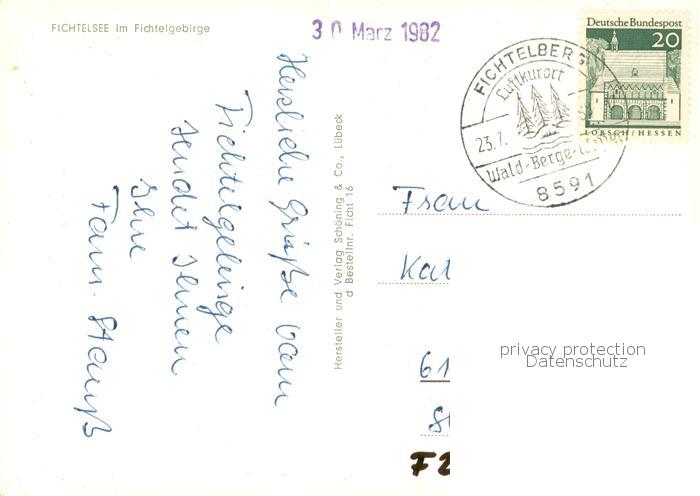 FICHTELSEE im Fichtelgebirge
30 März 1982
Herzliche Grüße vom
Fichtelgebirge
sendet Ihnen
Ihre
Fam. Stauß
Hersteller und Verlag Schöning & Co., Lübeck
d Bestellnr. Ficht 16
Deutsche Bundespost
20
LORSCH/HESSEN
FICHTELBERG
Luftkurort
23.7.
Wald-Berge-
8591
Frau
Kat
61
privacy protection
Datenschutz
F2